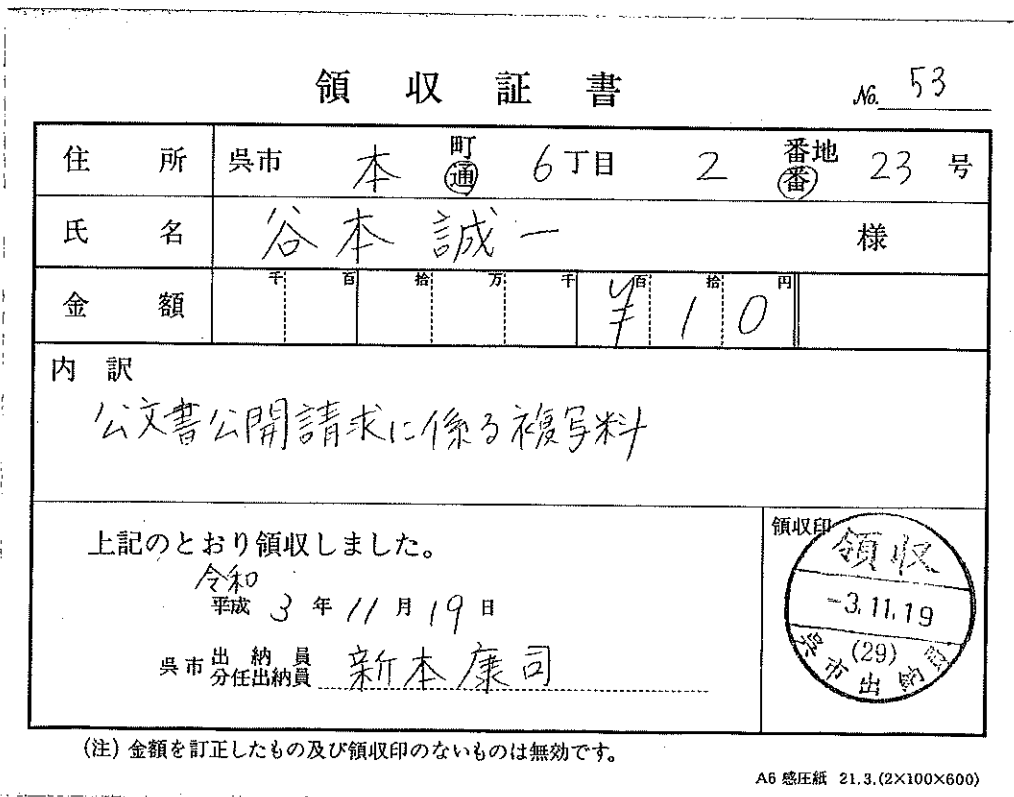 領収証書
No. 53
住所 呉市 本 町 通 6丁目 2 番地 番 23号
氏名 谷本誠一 様
金額 千 百 拾 万 千 百 拾 円
¥10
内訳
公文書公開請求に係る複写料
上記のとおり領収しました。
令和
平成 3年11月19日
呉市 出納員 分任出納員 新本康司
領収印
領収
-3.11.19
(29)
呉市出納員
(注) 金額を訂正したもの及び領収印のないものは無効です。
A6 感圧紙 21.3.(2×100×600)